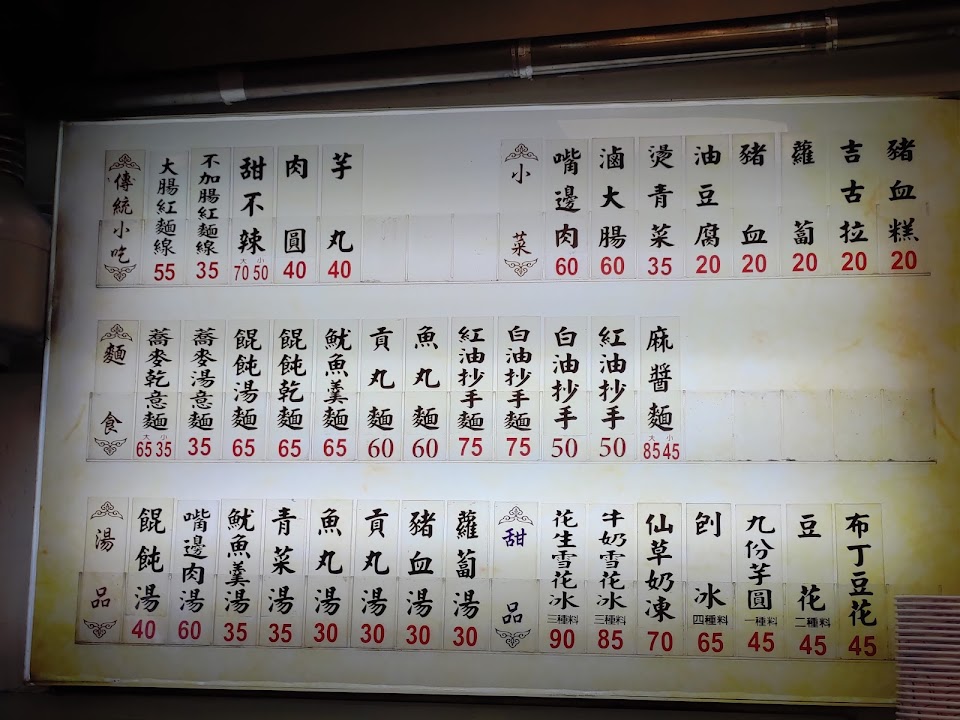 傳統小吃
大腸紅麵線 55
不加腸紅麵線 35
甜不辣 大70 小50
肉圓 40
芋丸 40
小菜
嘴邊肉 60
滷大腸 60
燙青菜 35
油豆腐 20
豬血 20
蘿蔔 20
吉古拉 20
豬血糕 20
麵食
蕎麥乾意麵 大65 小35
蕎麥湯意麵 35
餛飩湯麵 65
餛飩乾麵 65
魷魚羹麵 65
貢丸麵 60
魚丸麵 60
紅油抄手麵 75
白油抄手麵 75
白油抄手 50
紅油抄手 50
麻醬麵 大85 小45
湯品
餛飩湯 40
嘴邊肉湯 60
魷魚羹湯 35
青菜湯 35
魚丸湯 30
貢丸湯 30
豬血湯 30
蘿蔔湯 30
甜品
花生雪花冰 三種料 90
牛奶雪花冰 三種料 85
仙草奶凍 70
刨冰 四種料 65
九份芋圓 一種料 45
豆花 二種料 45
布丁豆花 45